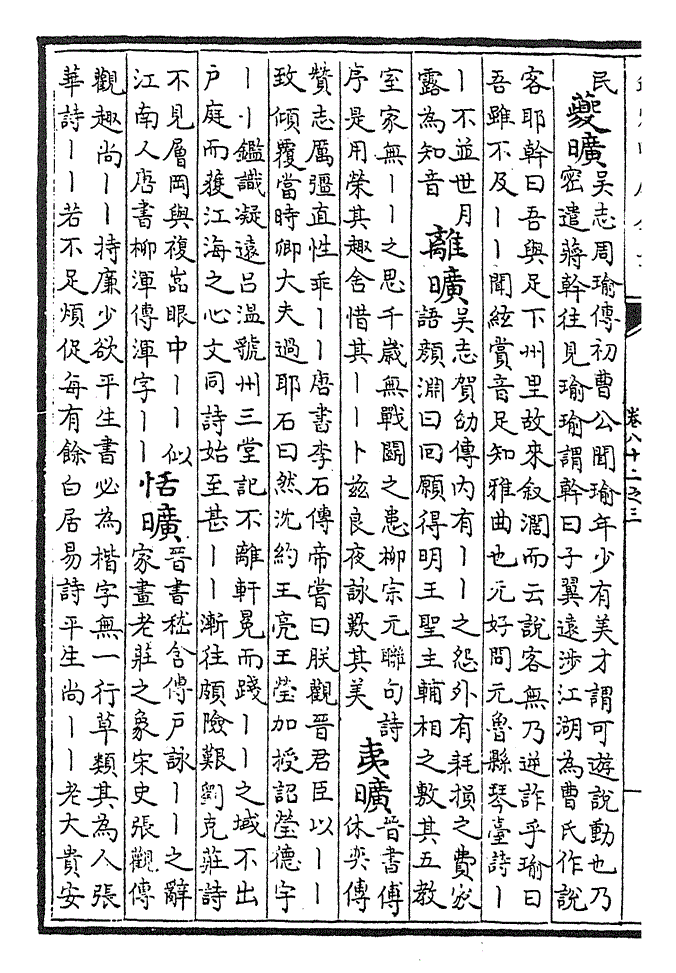 卷八十二之三
民
夔曠
吳志周瑜傳初曹公聞瑜年少有美才謂可遊說動也乃
密遣蔣幹往見瑜瑜謂幹曰子翼遠涉江湖為曹氏作說
客耶幹曰吾與足下州里故來叙濶而云說客無乃逆詐乎瑜曰
吾雖不及丨丨聞絃賞音足知雅曲也元好問元魯縣琴臺詩丨
丨不並世月
露為知音
離曠
吳志賀劭傳內有丨丨之怨外有耗損之費家
語顏淵曰回願得明王聖主輔相之敷其五教
室家無丨丨之思千歲無戰鬭之患柳宗元聯句詩
序是用榮其趣舍惜其丨丨卜兹良夜詠歎其美
夷曠
晉書傅
休奕傳
贊志厲彊直性乖丨丨唐書李石傳帝嘗曰朕觀晉君臣以丨丨
致傾覆當時卿大夫過耶石曰然沈約王亮王瑩加授詔瑩德宇
丨丨鑑識凝遠呂溫虢州三堂記不離軒冕而踐丨丨之域不出
戶庭而獲江海之心文同詩始至甚丨丨漸往頗險艱劉克莊詩
不見層岡與複嵓眼中丨丨似
江南人唐書柳渾傳渾字丨丨
恬曠
晉書嵇含傳戶詠丨丨之辭
家畫老莊之象宋史張觀傳
觀趣尚丨丨持廉少欲平生書必為楷字無一行草類其為人張
華詩丨丨若不足煩促每有餘白居易詩平生尚丨丨老大貴安